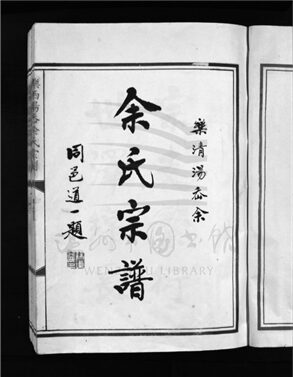 樂清湯岙余
余氏宗譜
同邑道一題
溫州市圖書館
WENZHOU LIBRARY